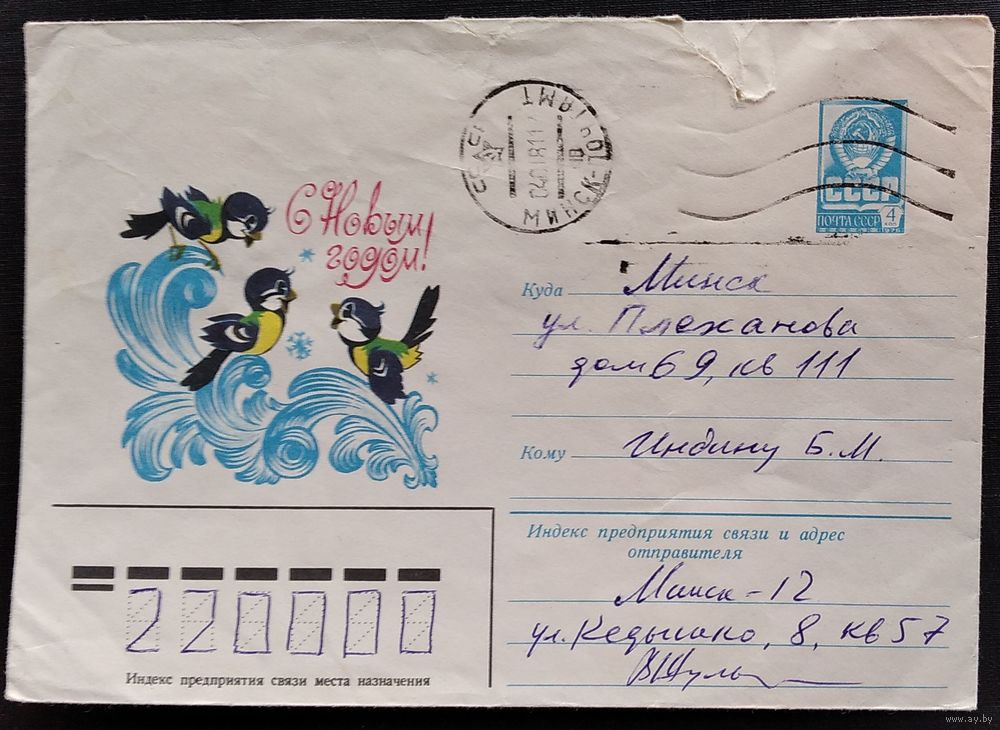 С Новым
годом!
МИНСК
СССР
ПОЧТА СССР
4
КОП
1976
Куда Минск
ул. Плеханова
дом 69, кв 111
Кому Индину Б.М.
Индекс предприятия связи и адрес
отправителя
Минск-12
ул. Кедышко, 8, кв 57
220000
Индекс предприятия связи места назначения
www.ay.by